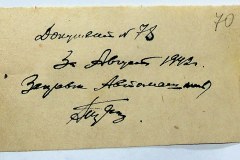 70
Документ N 78
За Август 1942г.
Заправки Автомашин